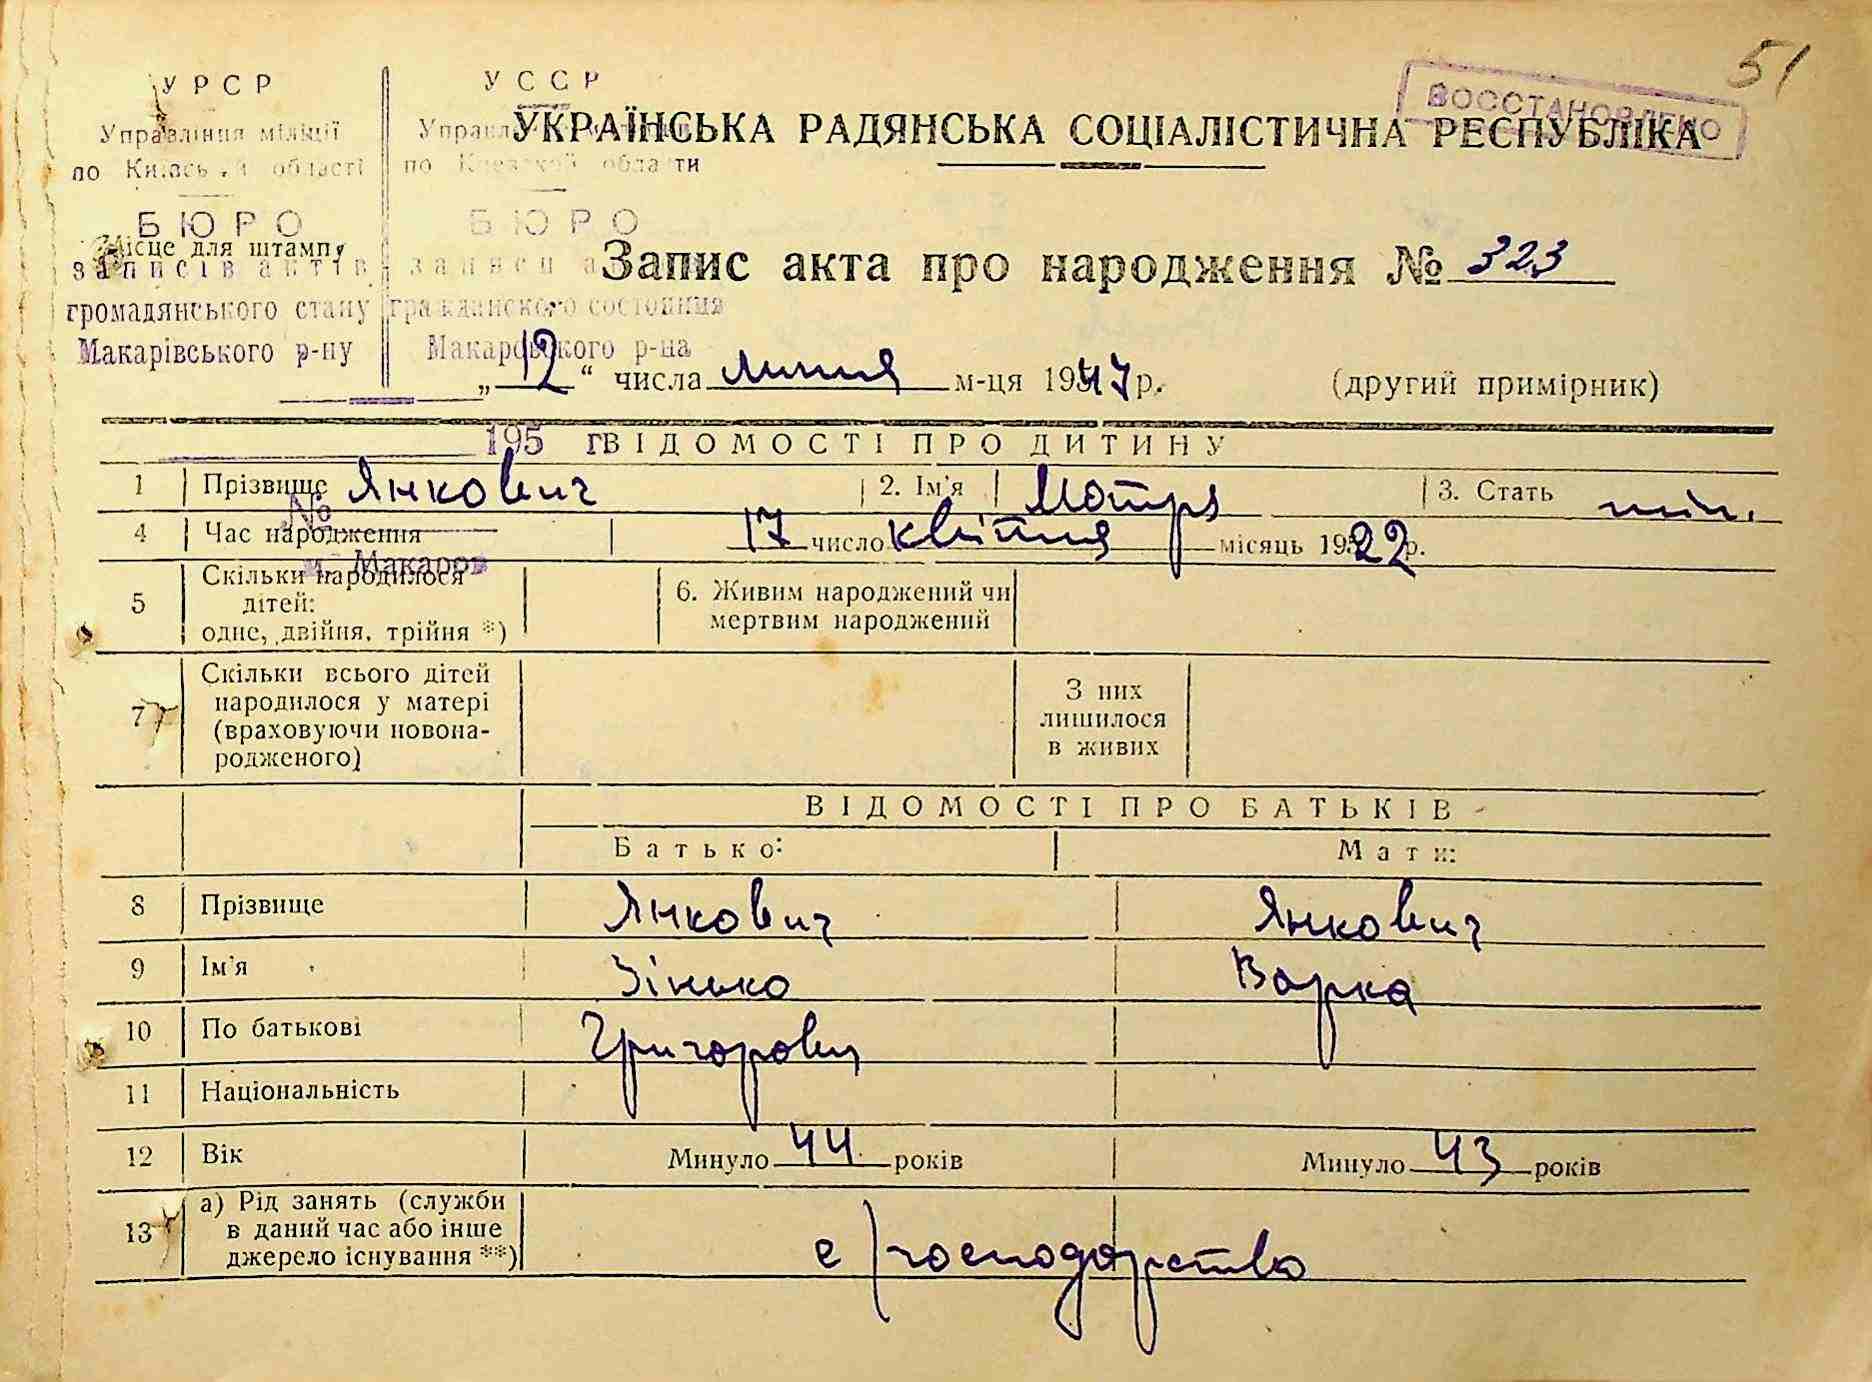 51
ВОССТАНОВЛЕНО
УРСР
Управління міліції
по Київській області
БЮРО
записів актів
громадянського стану
Макарівського р-ну
УССР
Управление милиции
по Киевской области
БЮРО
записи актов
гражданского состояния
Макаровского р-на
195 г.
№
м. Макаров
УКРАЇНСЬКА РАДЯНСЬКА СОЦІАЛІСТИЧНА РЕСПУБЛІКА
Місце для штампу
Запис акта про народження № 323
„12“ числа липня м-ця 1947 р. (другий примірник)
ВІДОМОСТІ ПРО ДИТИНУ
1 Прізвище Янкович 2. Ім'я Мотря 3. Стать жін.
4 Час народження 17 число квітня місяць 1922 р.
5 Скільки народилося
дітей:
одне, двійня, трійня *)
6. Живим народжений чи
мертвим народжений
7 Скільки всього дітей
народилося у матері
(враховуючи новона-
родженого)
З них
лишилося
в живих
ВІДОМОСТІ ПРО БАТЬКІВ
Батько: Мати:
8 Прізвище Янкович Янкович
9 Ім'я Зінько Варка
10 По батькові Григорович
11 Національність
12 Вік Минуло 44 років Минуло 43 років
13 а) Рід занять (служби
в даний час або інше
джерело існування **)
с/господарство